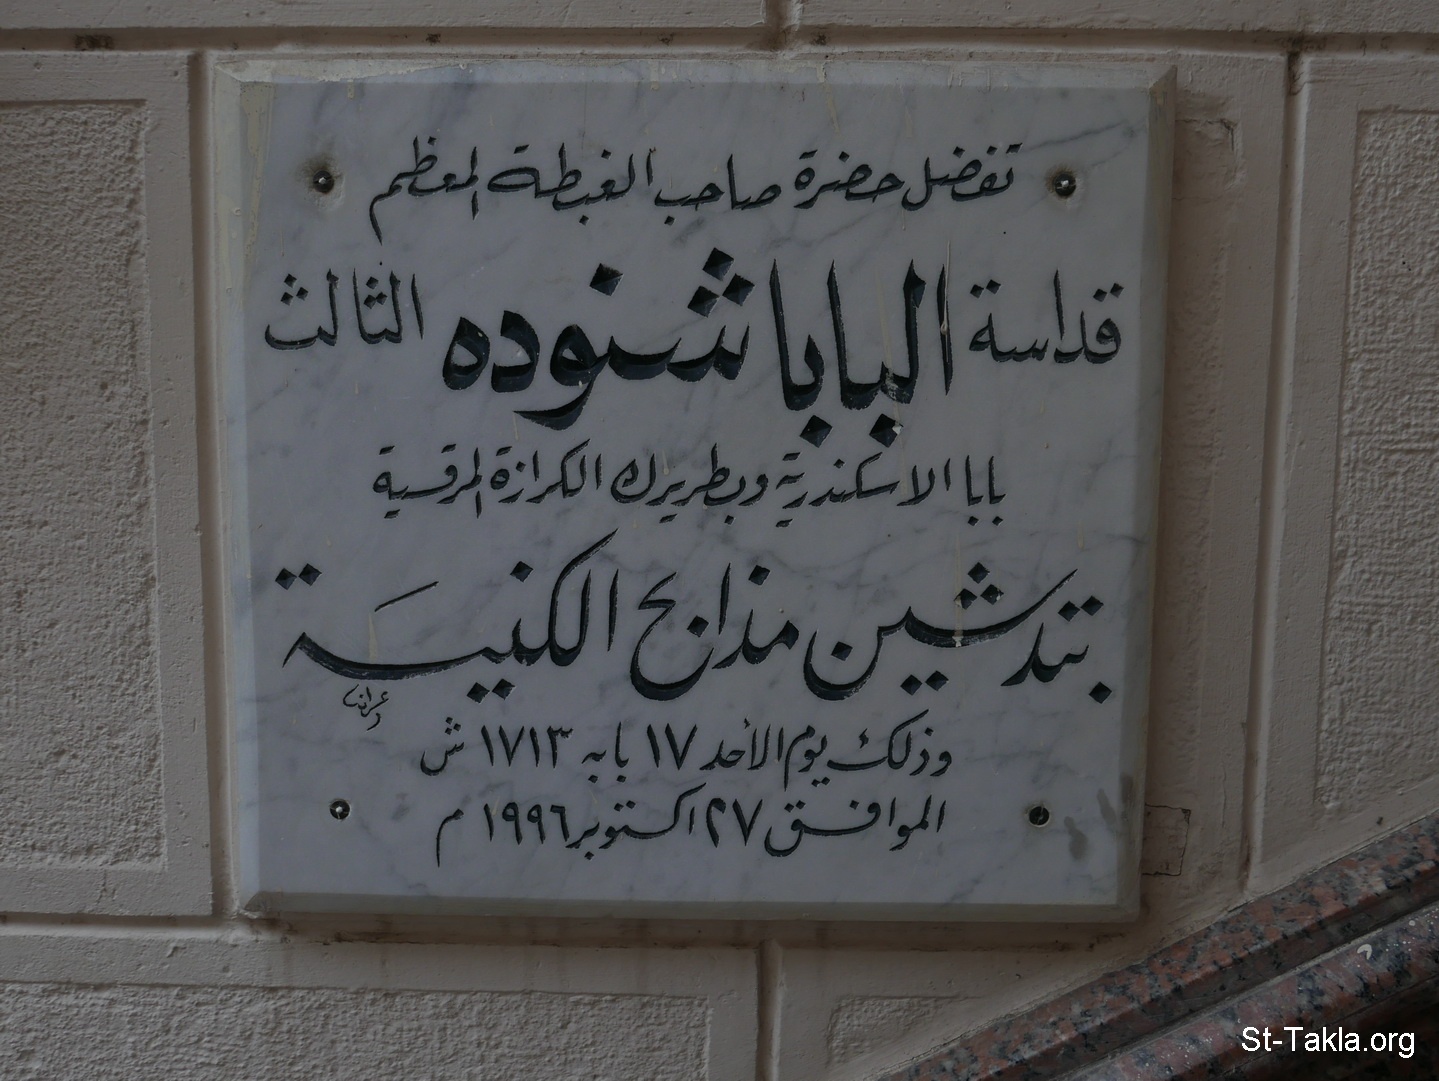 تفضل حضرة صاحب الغبطة المعظم
قداسة البابا شنوده الثالث
بابا الاسكندرية وبطريرك الكرازة المرقسية
بتدشين مذابح الكنيسة
وذلك يوم الأحد ١٧ بابه ١٧١٣ ش
الموافق ٢٧ اكتوبر ١٩٩٦ م
St-Takla.org